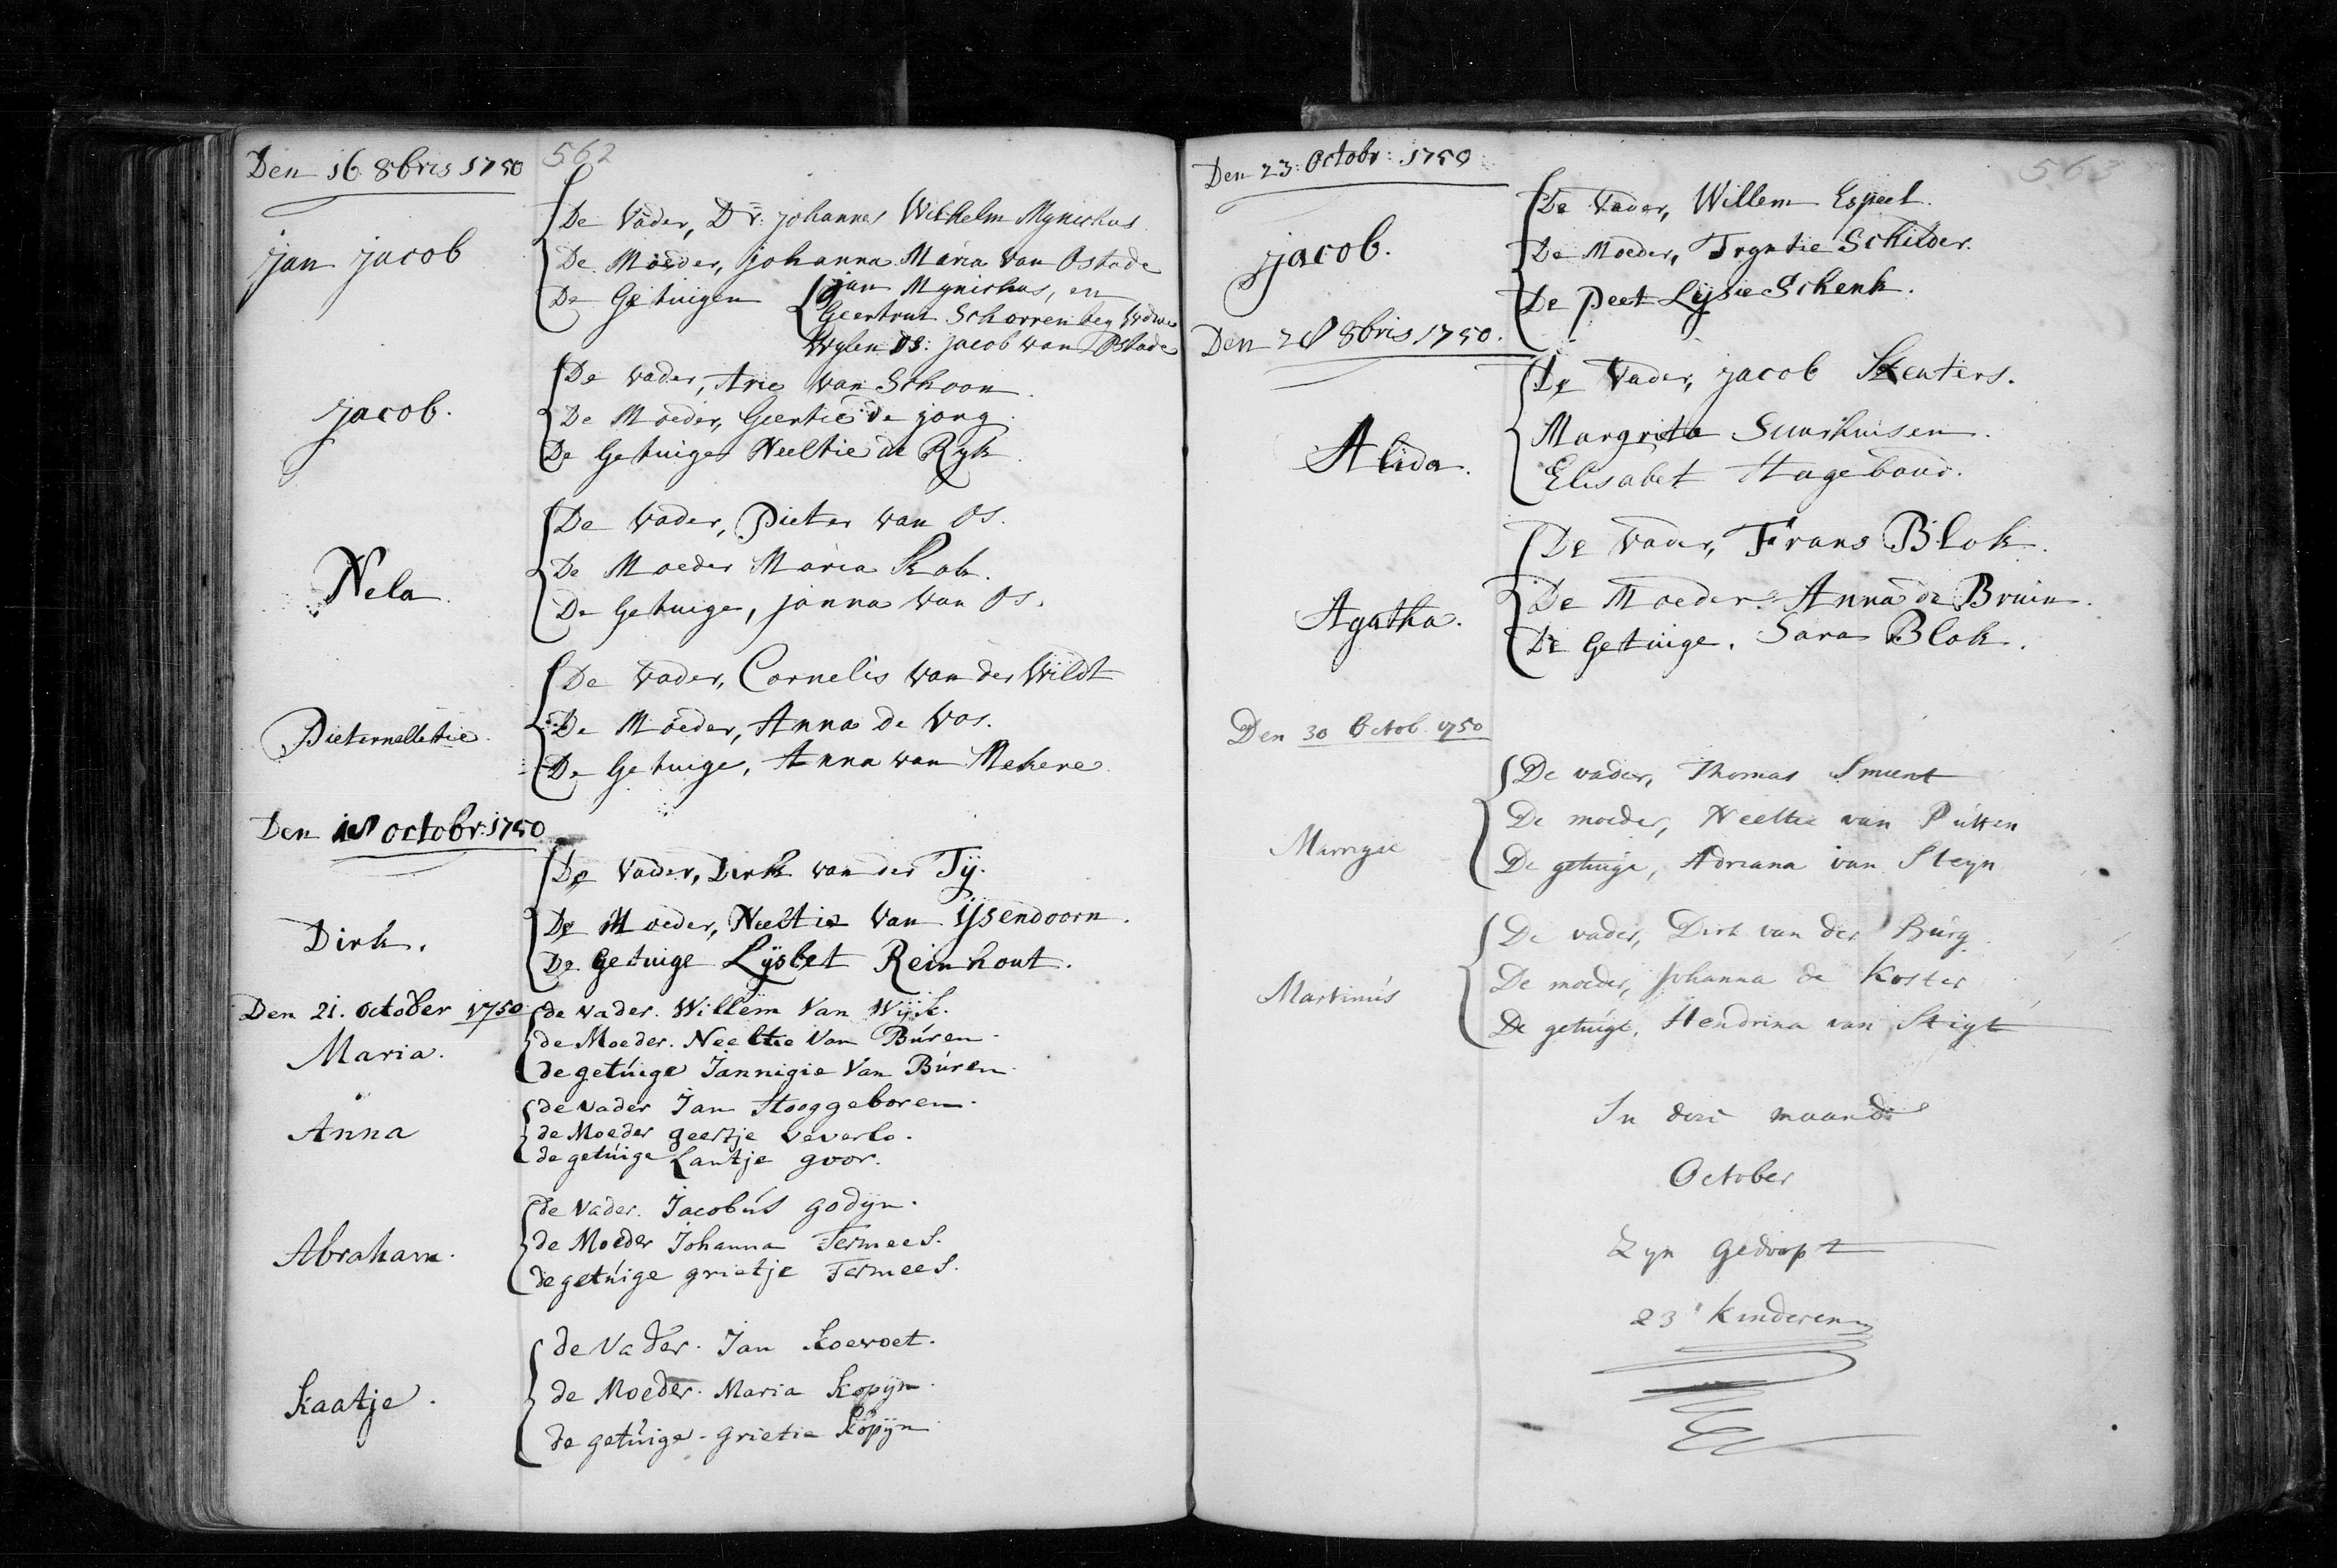 562
Den 16 8bris 1750
Jan Jacob
De Vader, Dr: Johannes Wilhelm Mynichus
De Moeder, Johanna Maria van Ostade
De Getuigen Jan Mynichus, en
Geertrut Schorrenberg Wdwe
Wylen DS: Jacob van Ostade
Jacob.
De vader, Arie van Schoon
De Moeder, Geertie de jong.
De Getuige Neeltie de Ryk
Nela
De Vader, Pieter van Os.
De Moeder Maria Kok.
De Getuige, Janna van Os.
Pieternelletie
De Vader, Cornelis van der Wildt
De Moeder, Anna de Vos.
De Getuige, Anna van Mekere
Den octobr: 1750
Dirk.
De Vader, Dirk van der Tÿ.
De Moeder, Neeltie Van Ysendoorn.
De Getuige Lijsbet Reinhout.
Den 21. October 1750
Maria.
de vader. Willem Van Wijk.
de Moeder. Neeltie Van Buren
de getuige Jannigie Van Buren
Anna
de vader Jan Hooggeboren
de Moeder geertje veverlo.
de getuige Lantje goor.
Abraham.
de Vader. Jacobus godyn.
de Moeder Johanna Fermees.
de getuige grietje Fermees.
Kaatje.
de Vader. Jan Koevoet.
de Moeder. Maria Kopyn
de getuige. grietie Kopyn
563
Den 23: Octobr: 1750
Jacob.
De Vader, Willem Espeet.
De Moeder, Tryntie Schilder.
De Peet Lysie Schenk.
Den 8bris 1750.
Alida.
De Vader, Jacob Skenters.
Margrita Suurhuisen.
Elisabet Hageboud.
Agatha.
De Vader, Frans Blok.
De Moeder. Anna de Bruin.
De Getuige. Sara Blok.
Den 30 Octob. 1750
Marrigie
De vader, Thomas Smient
De moeder, Neeltie van Putten
De getuige, Adriana van Steyn
Martinus
De vader, Dirk van der Burg
De moeder, Johanna de Koster
De getuige, Hendrina van Stigt
In dese maand
October
Zyn gedoopt
23 Kinderen